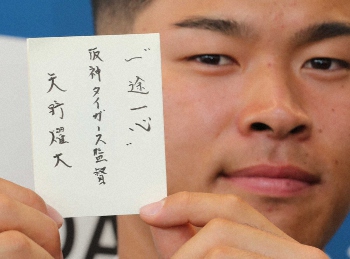 "一途一心"
阪神タイガース監督
矢野燿大